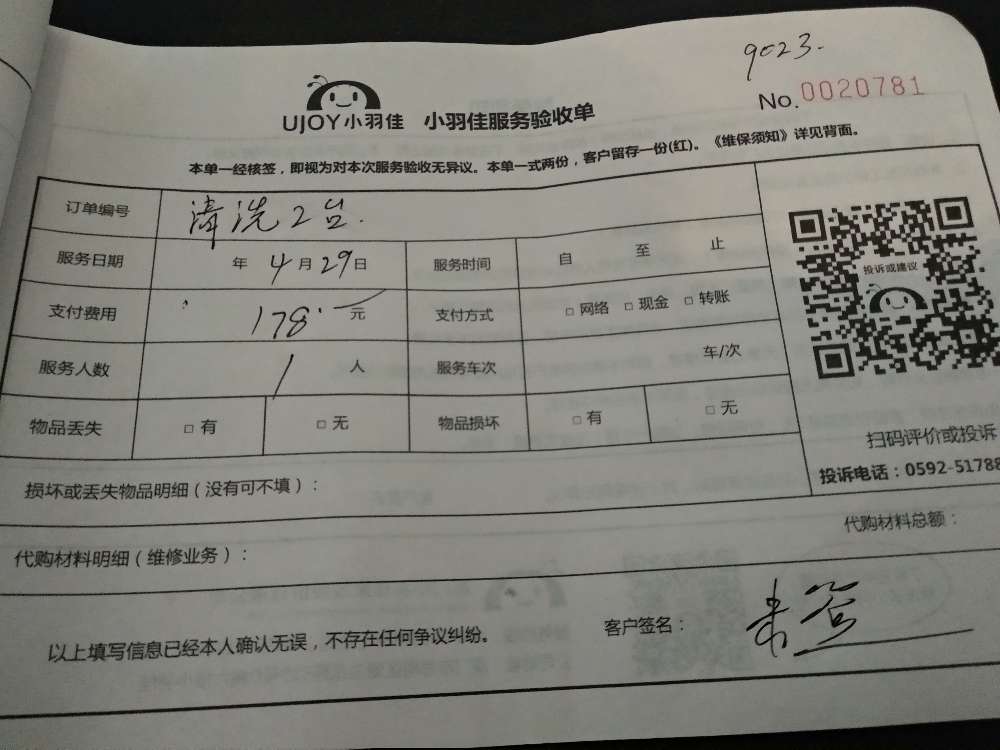 9023.
No.0020781
UJOY小羽佳 小羽佳服务验收单
本单一经核签，即视为对本次服务验收无异议。本单一式两份，客户留存一份(红)。《维保须知》详见背面。
订单编号 清洗2台.
服务日期 年 4月29日 服务时间 自 至 止
支付费用 178. 元 支付方式 □ 网络 □ 现金 □ 转账
服务人数 1 人 服务车次 车/次
物品丢失 □ 有 □ 无 物品损坏 □ 有 □ 无
投诉或建议
扫码评价或投诉
投诉电话：0592-51788
损坏或丢失物品明细（没有可不填）：
代购材料明细（维修业务）： 代购材料总额：
以上填写信息已经本人确认无误，不存在任何争议纠纷。 客户签名：